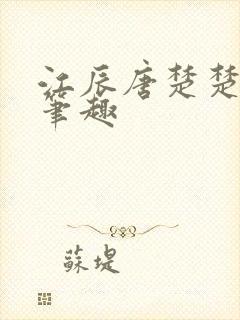 江辰唐楚楚
笔趣
蘇堤